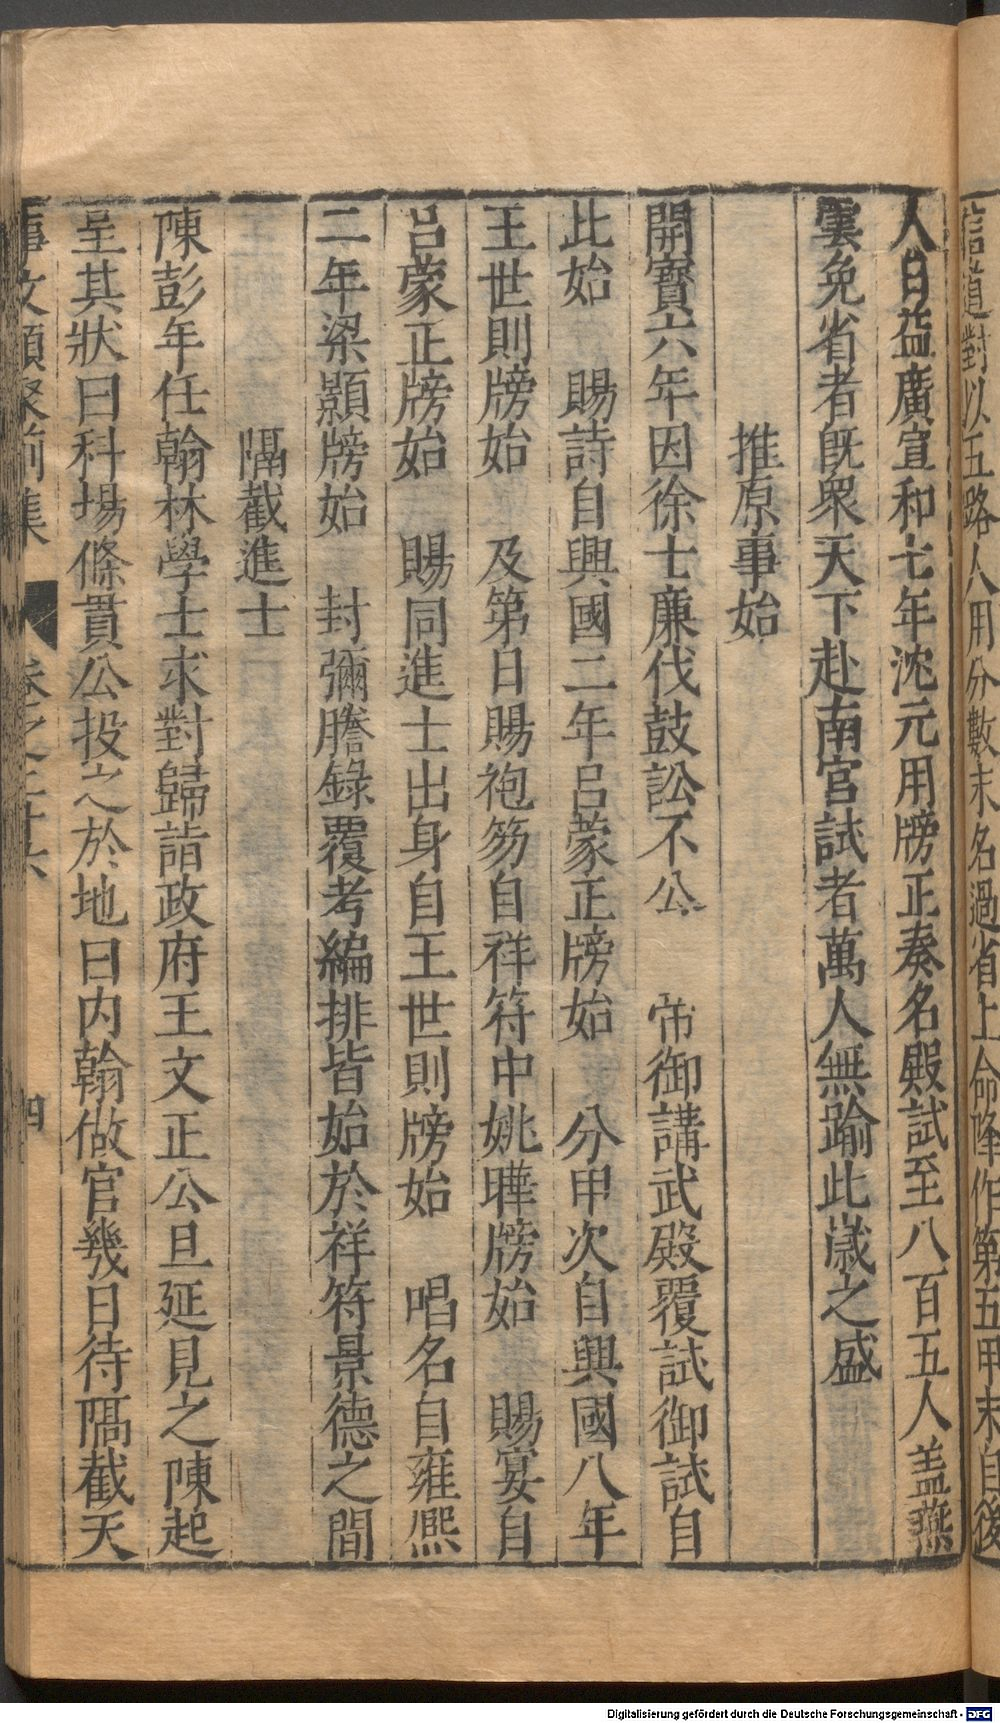 信道對以五路人用分數末名過省上命降作第五甲末自後
人自益廣宣和七年沈元用牓正奏名殿試至八百五人盖燕
雲免省者旣衆天下赴南宫試者萬人無踰此嵗之盛
推原事始
開寳六年因徐士廉伐鼓訟不公　帝御講武殿覆試御試自
此始　賜詩自興國二年吕蒙正牓始　分甲次自興國八年
王世則牓始　及第日賜袍笏自祥符中姚曄牓始　賜宴自
吕蒙正牓始　賜同進士出身自王世則牓始　唱名自雍熈
二年梁顥牓始　封彌謄錄覆考編排皆始於祥符景德之間
隔截進士
陳彭年任翰林學士求對歸詣政府王文正公旦延見之陳起
呈其狀曰科場條貫公投之於地曰内翰做官幾日待隔截天
事文類聚前集　卷之二十六　四
Digitalisierung gefördert durch die Deutsche Forschungsgemeinschaft - DFG